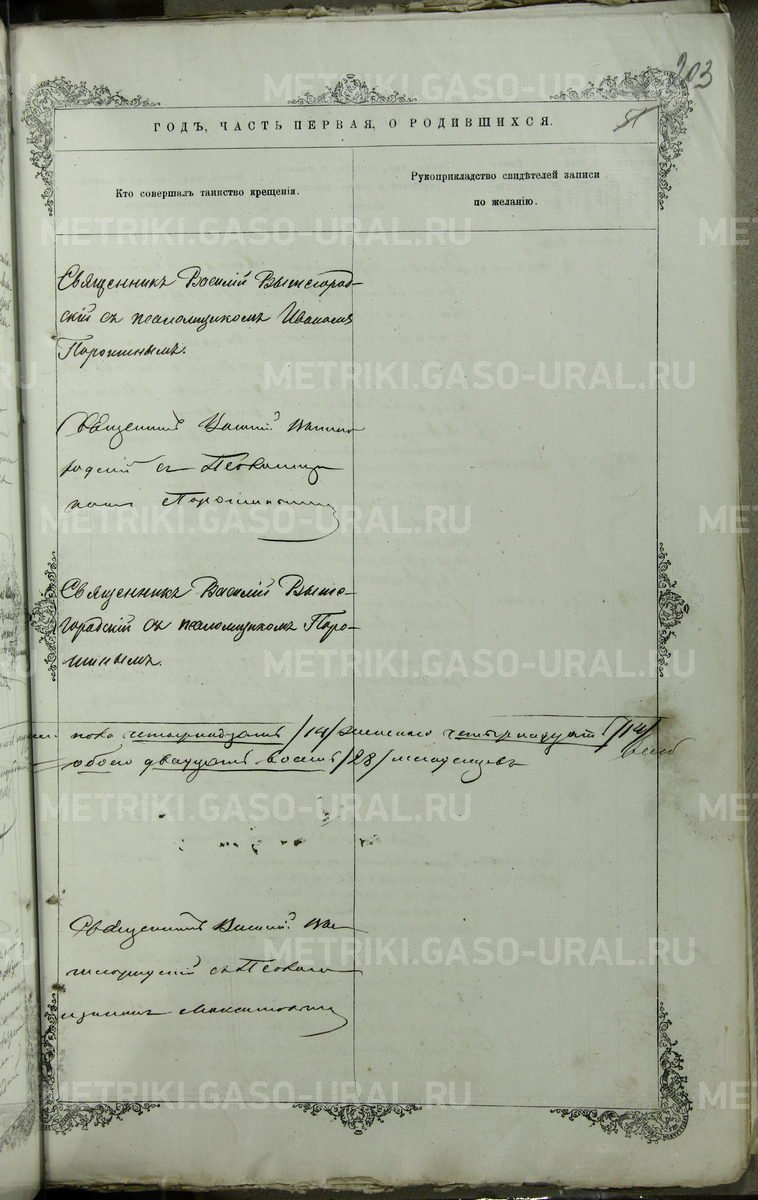 203
51
ГОДЪ, ЧАСТЬ ПЕРВАЯ, О РОДИВШИХСЯ.
Кто совершалъ таинство крещенія.
Рукоприкладство свидѣтелей записи
по желанію.
Священникъ Василій Вышегород-
скій съ псаломщикомъ Иваномъ
Порошинымъ.
Священникъ Василій Вышего
родскій съ Псаломщи
комъ Порошинымъ
Священникъ Василій Выше-
городскій съ псаломщикомъ Поро-
шинымъ.
пола четырнадцать /14/ женскаго четырнадцать /14/
обоего двадцать восемь /28/ младенцевъ
Священникъ Василій Вы
шегородскій съ Псалом
щикомъ
METRIKI.GASO-URAL.RU